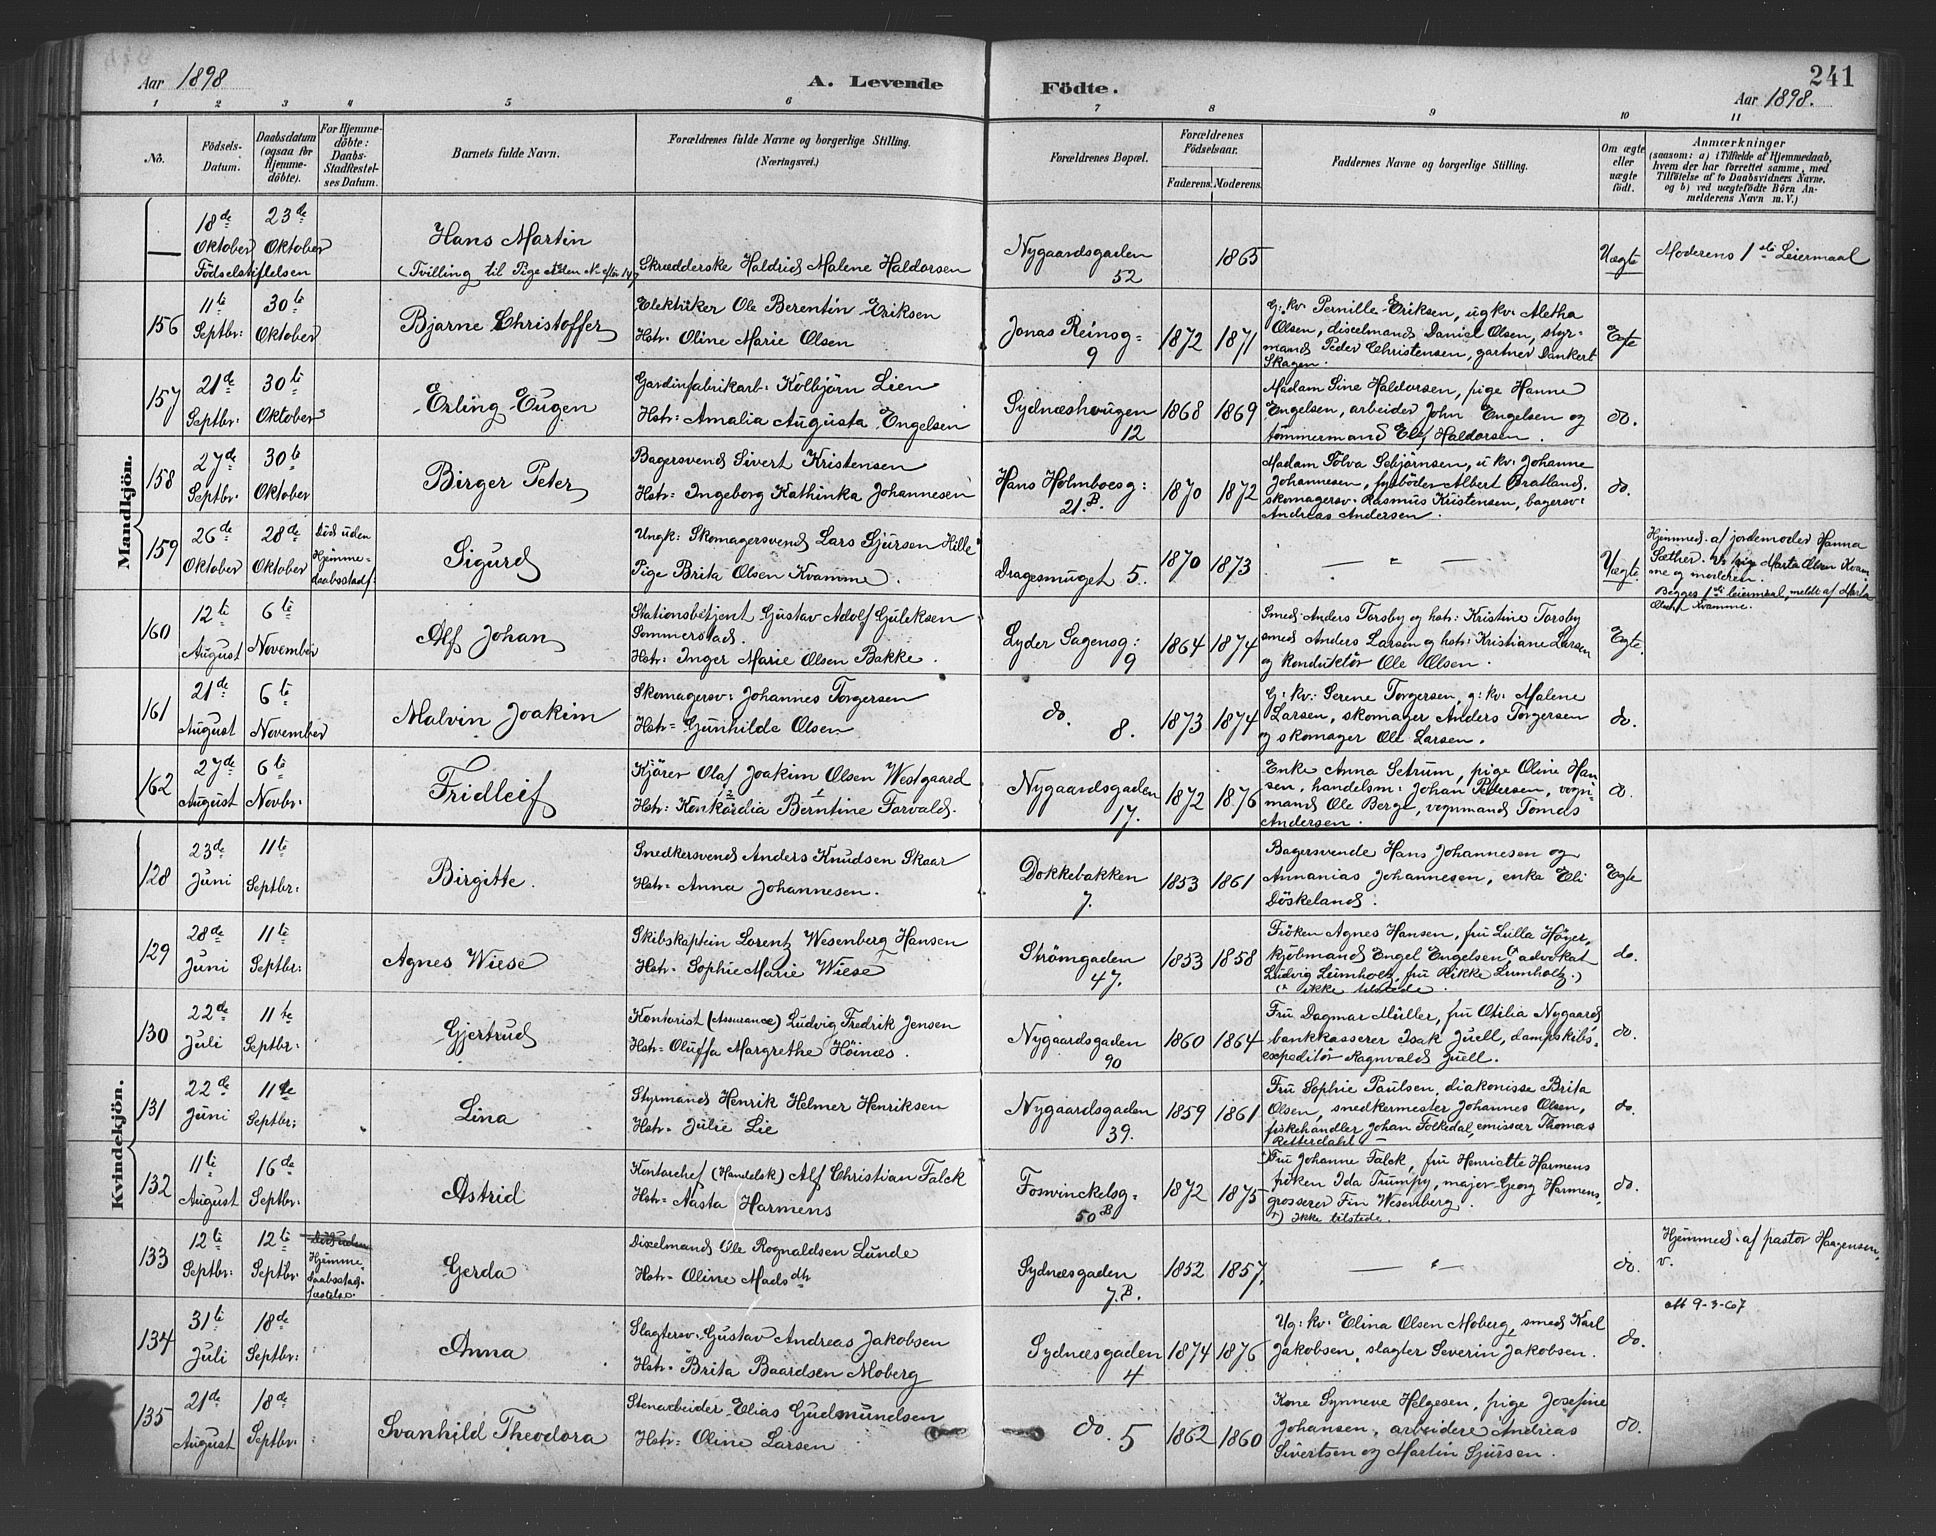 Aar 1898
A. Levende
Födte.
241
Aar 1898.
1 2 3 4 5 6 7 8 9 10 11
No.
Födsels-
Datum.
Daabsdatum
(ogsaa for
Hjemme-
döbte).
For Hjemme-
döbte:
Daabs-
Stadfæstel-
ses Datum.
Barnets fulde Navn.
Forældrenes fulde Navne og borgerlige Stilling.
(Næringsvei.)
Forældrenes Bopæl.
Forældrenes
Födselsaar.
Faderens. Moderens.
Faddernes Navne og borgerlige Stilling.
Om ægte
eller
uægte
födt.
Anmærkninger
(saasom: a) i Tilfælde af Hjemmedaab,
hvem der har forrettet samme, med
Tilföielse af to Daabsvidners Navne,
og b) ved uægtefödte Börn An-
melderens Navn m. V.)
Mandkjön.
18de
Oktober
Födselstiftelsen
23de
Oktober
Hans Martin
(Tvilling til Pige
Skrædderske Haldrid Malene Haldorsen
Nygaardsgaden
52
1865
Uægte
Moderens 1ste Leiermaal
156
11te
Septbr:
30te
Oktober
Bjarne Christoffer
Elektriker Ole Berentin Eriksen
Hstr: Oline Marie Olsen
Jonas Reinsg=
9
1872
1871
G: kv: Pernille Eriksen, ug kv: Aletha
Olsen, dixelmand Daniel Olsen, styr-
mand Peder Christensen, gartner Dankert
Skagen.
Egte
157
21de
Septbr:
30te
Oktober
Erling Eugen
Gardinfabrikarb: Kolbjörn Lien
Hstr: Amalia Augusta Engelsen
Sydnæshougen
12
1868
1869
Madam Sine Haldorsen, pige Hanne
Engelsen, arbeider John Engelsen og
tömmermand Elef Haldorsen.
do.
158
27de
Septbr:
30te
Oktober
Birger Peter
Bagersvend Sivert Kristensen
Hstr: Ingeborg Kathinka Johannesen
Hans Holmboesg:
21.B.
1870
1872
Madam Sölva Sebjörnsen, u kv: Johanne
Johannesen, fyrböder Albert Bratland,
skomagersv. Rasmus Kristensen, bagersv:
Andreas Andersen.
do.
159
26de
Oktober
28de
Oktober
Död uden
Hjemme-
daabsstadf.
Sigurd
Ungk: Skomagersvend Lars Sjursen Hille
Pige Brita Olsen Kvamme.
Dragesmuget 5.
1870
1873
— " —
Uægte
Hjemmed. af jordemoder Hanna
Sæther. Vs pige Marta Olsen Kvam-
me og moderen.
Begges 1ste leiermaal, meldt af Marta
Olsen Kvamme.
160
12te
August
6te
November
Alf Johan
Stationsbetjent Gustav Adolf Guleksen
Sommerstad.
Hstr: Inger Marie Olsen Bakke.
Lyder Sagensg:
9
1864
1874
Smed Anders Torsby og hstr: Kristine Torsby
smed Anders Larsen og hstr: Kristiane Larsen
og konduktör Ole Olsen.
Egte.
161
21de
August
6te
November
Malvin Joakim
Skomagersv: Johannes Torgersen
Hstr: Gunhilde Olsen
do.
8.
1873
1874
G: kv: Serene Torgersen, g: kv: Malene
Larsen, skomager Anders Torgersen
og skomager Ole Larsen.
do.
162
27de
August
6te
Novbr:
Fridleif
Kjörer Olaf Joakim Olsen Westgaard
Hstr: Konkordia Berntine Torvald.
Nygaardsgaden
17.
1872
1876
Enke Anna Setrum, pige Oline Han-
sen, handelsm: Johan Pedersen, vogn-
mand Ole Berge, vognmand Tomas
Andersen.
do.
Kvindekjön.
128
23de
Juni
11te
Septbr:
Birgitte.
Snedkersvend Anders Knudsen Skaar
Hstr: Anna Johannesen.
Dokkebakken
7.
1853
1861
Bagersvende Hans Johannesen og
Annanias Johannesen, enke Eli
Döskeland.
Egte
129
28de
Juni
11te
Septbr:
Agnes Wiese
Skibskaptein Lorentz Wesenberg Hansen
Hstr: Sophie Marie Wiese
Strömgaden
47.
1853
1858
Fröken Agnes Hansen, fru Lulla Höyer,
kjöbmand Engel Engelsen (x advokat
Ludvig Lumholtz, fru Rikke Lumholtz.)
(x ikke tilstede.
do.
130
22de
Juli
11te
Septbr:
Gjertrud
Kontorist (Assurance) Ludvig Fredrik Jensen
Hstr: Oluffa Margrethe Höinæs.
Nygaardsgaden
90
1860
1864
Fru Dagmar Müller, fru Otilia Nygaard
bankkasserer Isak Juell, dampskibs-
expeditör Ragnvald Juell.
do.
131
22de
Juni
11te
Septbr:
Lina
Styrmand Henrik Helmer Henriksen
Hstr: Julie Lie
Nygaardsgaden
39.
1859
1861
Fru Sophie Paulsen, diakonisse Brita
Olsen, snedkermester Johannes Olsen,
fiskehandler Johan Folkedal, emissær Thomas
Retterdahl
do.
132
11te
August
16de
Septbr:
Astrid
Kontorchef (Handelsk) Alf Christian Falck
Hstr: Aasta Harmens
Fosvinckelsg=
50B
1872
1875
Fru Johanne Falck, fru Henriette Harmens
fröken Ida Trumpy, major Georg Harmens,
grosserer Fin Wesenberg.
+) ikke tilstede.
do.
133
12te
Septbr:
12te
Septbr:
Hjemme-
daabsstad-
fæstelse.
Gerda
Dixelmand Ole Rognaldsen Lunde
Hstr: Oline Madsdtr
Sydnæsgaden
7.B.
1852
1857.
— " —
do.
Hjemmed. af pastor Haagensen.
v.
134
31te
Juli
18de
Septbr:
Anna
Slagtersv: Gustav Andreas Jakobsen
Hstr: Brita Baardsen Moberg
Sydnæsgaden
4
1874
1876
Ug: kv: Elina Olsen Moberg, smed Karl
Jakobsen, slagter Severin Jakobsen.
do.
att 9-3-07
135
21de
August
18de
Septbr:
Svanhild Theodora
Stenarbeider Elias Gudmundsen
Hstr: Oline Larsen
do. 5
1862
1860
Kone Synneve Helgesen, pige Josefine
Johansen, arbeidere Andreas
Sivertsen og Martin Sjursen.
do.